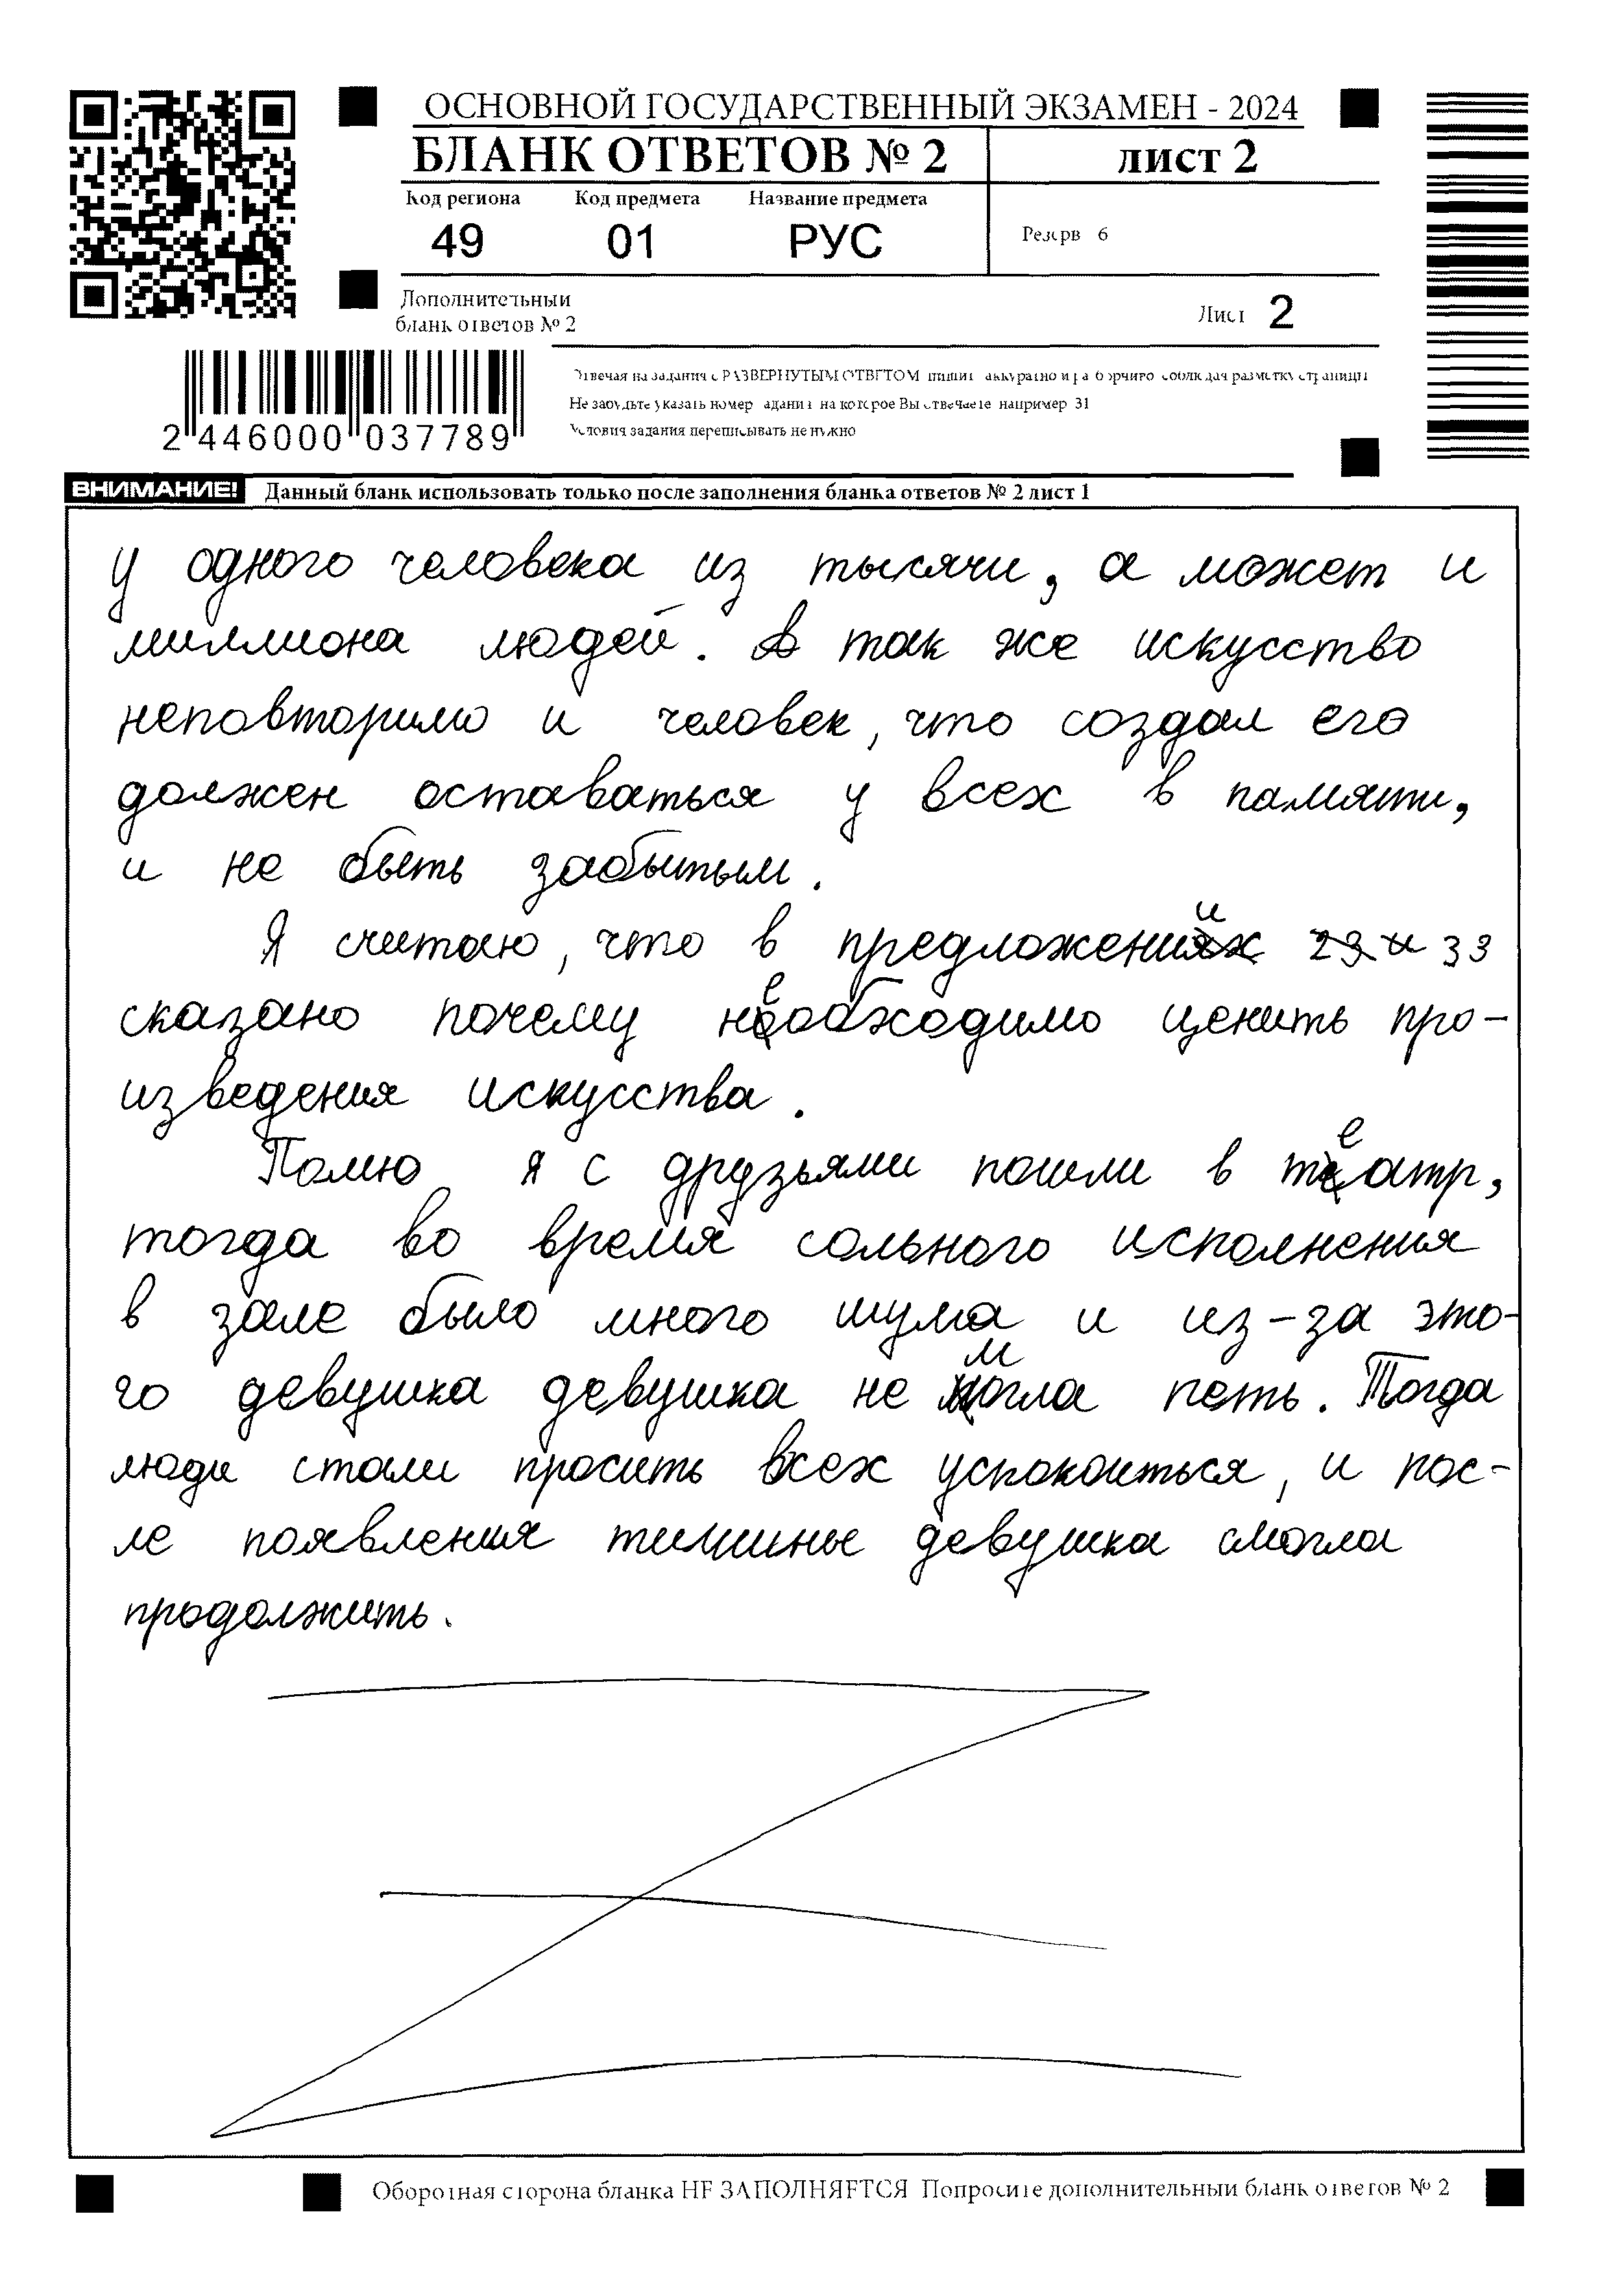 ОСНОВНОЙ ГОСУДАРСТВЕННЫЙ ЭКЗАМЕН - 2024
БЛАНК ОТВЕТОВ № 2
лист 2
Код региона
Код предмета
Название предмета
49
01
РУС
Резерв 6
Дополнительный
бланк ответов № 2
Лист 2
Отвечая на задания с РАЗВЕРНУТЫМ ОТВЕТОМ пишите аккуратно и разборчиво соблюдая разметку страницы
Не забудьте указать номер задания на которое Вы отвечаете например 31
Условия задания переписывать не нужно
2 446000 037789
ВНИМАНИЕ! Данный бланк использовать только после заполнения бланка ответов № 2 лист 1
у одного человека из тысячи, а может и
миллиона людей. А так же искусство
неповторимо и человек, что создал его
должен оставаться у всех в памяти,
и не быть забытым.
Я считаю, что в предложении 33
сказано почему необходимо ценить про-
изведения искусства.
Помню я с друзьями пошли в театр,
тогда во время сольного исполнения
в зале было много шума и из-за это-
го девушка девушка не могла петь. Тогда
люди стали просить всех успокоиться, и пос-
ле появления тишины девушка смогла
продолжить.
Оборотная сторона бланка НЕ ЗАПОЛНЯЕТСЯ Попросите дополнительный бланк ответов № 2